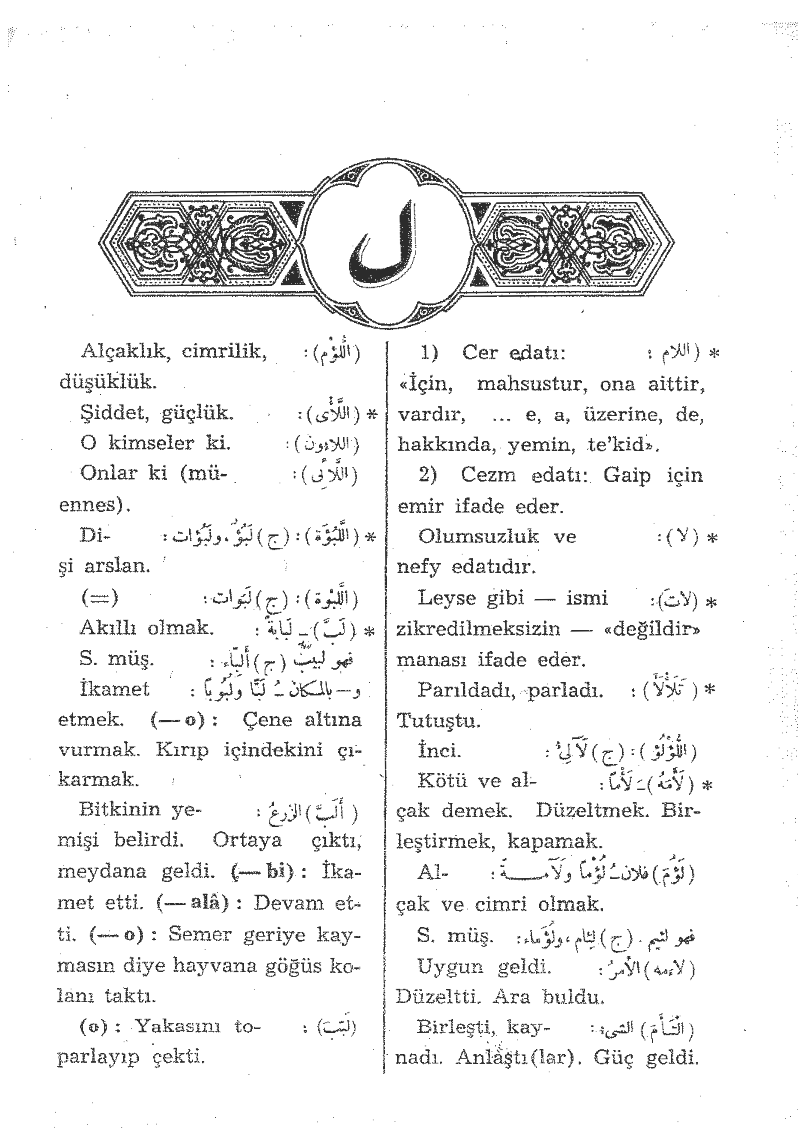 ل
* (اللام) : 1) Cer edatı:
«İçin, mahsustur, ona aittir,
vardır, ... e, a, üzerine, de,
hakkında, yemin, te'kid».
2) Cezm edatı: Gaip için
emir ifade eder.
* (لا) : Olumsuzluk ve
nefy edatıdır.
* (لات) : Leyse gibi — ismi
zikredilmeksizin — «değildir»
manası ifade eder.
* (تَلَأْلَأَ) : Parıldadı, parladı.
Tutuştu.
(اللُّؤْلُؤ) : (ج) لَآلِئ : İnci.
* (لَأَمَهُ) ـَ لَأْمًا : Kötü ve al-
çak demek. Düzeltmek. Bir-
leştirmek, kapamak.
(لَؤُمَ) فلان ـُ لُؤْمًا ولَآمَة : Al-
çak ve cimri olmak.
فهو لئيم . (ج) لِئام ، ولُؤَماء : S. müş.
(لاءمه) الأمرُ : Uygun geldi.
Düzeltti. Ara buldu.
(الْتَأَمَ) الشىء : Birleşti, kay-
nadı. Anlaştı(lar). Güç geldi.
(اللُّؤْم) : Alçaklık, cimrilik,
düşüklük.
* (اللَّأْى) : Şiddet, güçlük.
(اللاءون) : O kimseler ki.
(اللَّائى) : Onlar ki (mü-
ennes).
* (اللَّبُؤَة) : (ج) لَبُؤٌ ، ولَبُؤات : Di-
şi arslan.
(اللَّبُوَة) : (ج) لَبَوات : (=)
* (لَبَّ) ـَ لَبابَةً : Akıllı olmak.
فهو لبيبٌ (ج) أَلِبّاء : S. müş.
و— بالمكان ـُ لَبًّا ولُبُوبًا : İkamet
etmek. (— o) : Çene altına
vurmak. Kırıp içindekini çı-
karmak.
(أَلَبَّ) الزرعُ : Bitkinin ye-
mişi belirdi. Ortaya çıktı,
meydana geldi. (— bi) : İka-
met etti. (— alâ) : Devam et-
ti. (— o) : Semer geriye kay-
masın diye hayvana göğüs ko-
lanı taktı.
(لَبَّبَ) : (o) : Yakasını to-
parlayıp çekti.